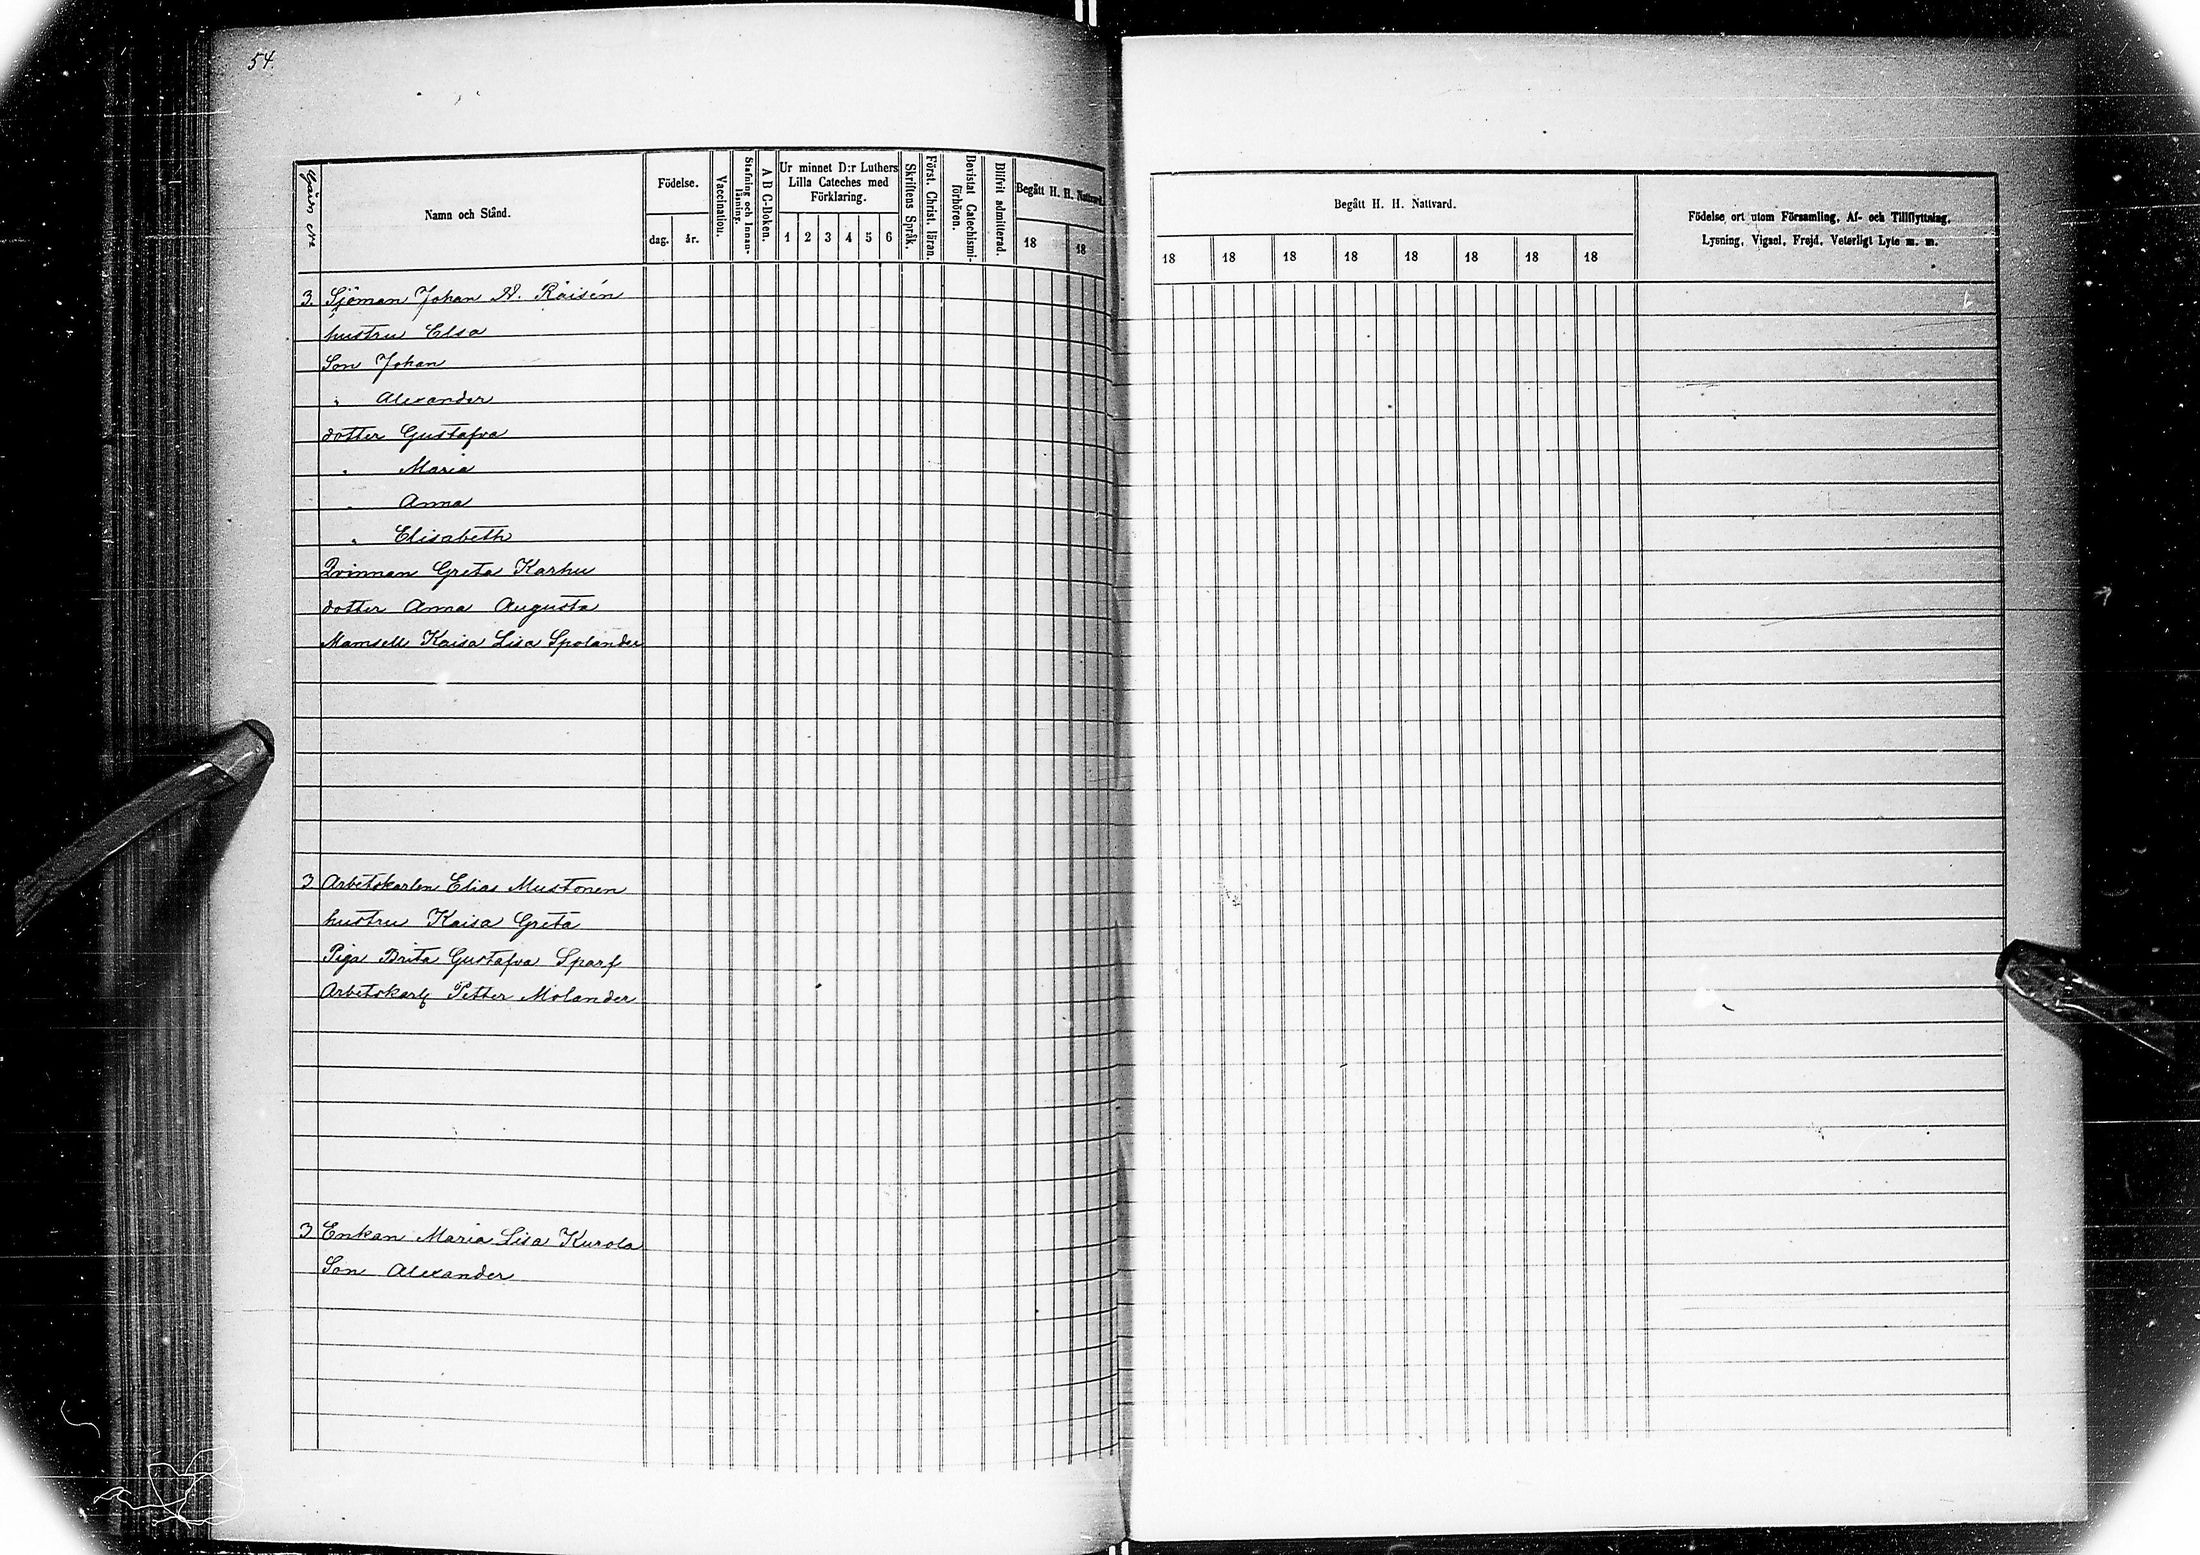 54.
Gårds No
Namn och Stånd.
Födelse.
dag.
år.
Vaccinationu.
Stafning och Innan-
läsning.
A B C-Boken.
Ur minnet D:r Luthers
Lilla Cateches med
Förklaring.
1 2 3 4 5 6
Skriftens Språk.
Först. Christ. läran.
Bevistat Catechismi-
förhören.
Blifvit admitterad.
Begått H. H. Nattvard.
18 18
Begått H. H. Nattvard.
18 18 18 18 18 18 18 18
Födelse ort utom Församling, Af- och Tillflyttning,
Lysning, Vigsel, Frejd, Veterligt Lyte m. m.
3. Sjöman Johan A. Räisén
hustru Elsa
Son Johan
" Alexander
dotter Gustafva
" Maria
" Anna
" Elisabeth
Qvinnan Greta Karhu
dotter Anna Augusta
Mamsell Kaisa Lisa Spolander
3 Arbetskarlen Elias Mustonen
hustru Kaisa Greta
Piga Brita Gustafva Sparf
Arbetskarl Petter Molander
3 Enkan Maria Lisa Kurola
Son Alexander